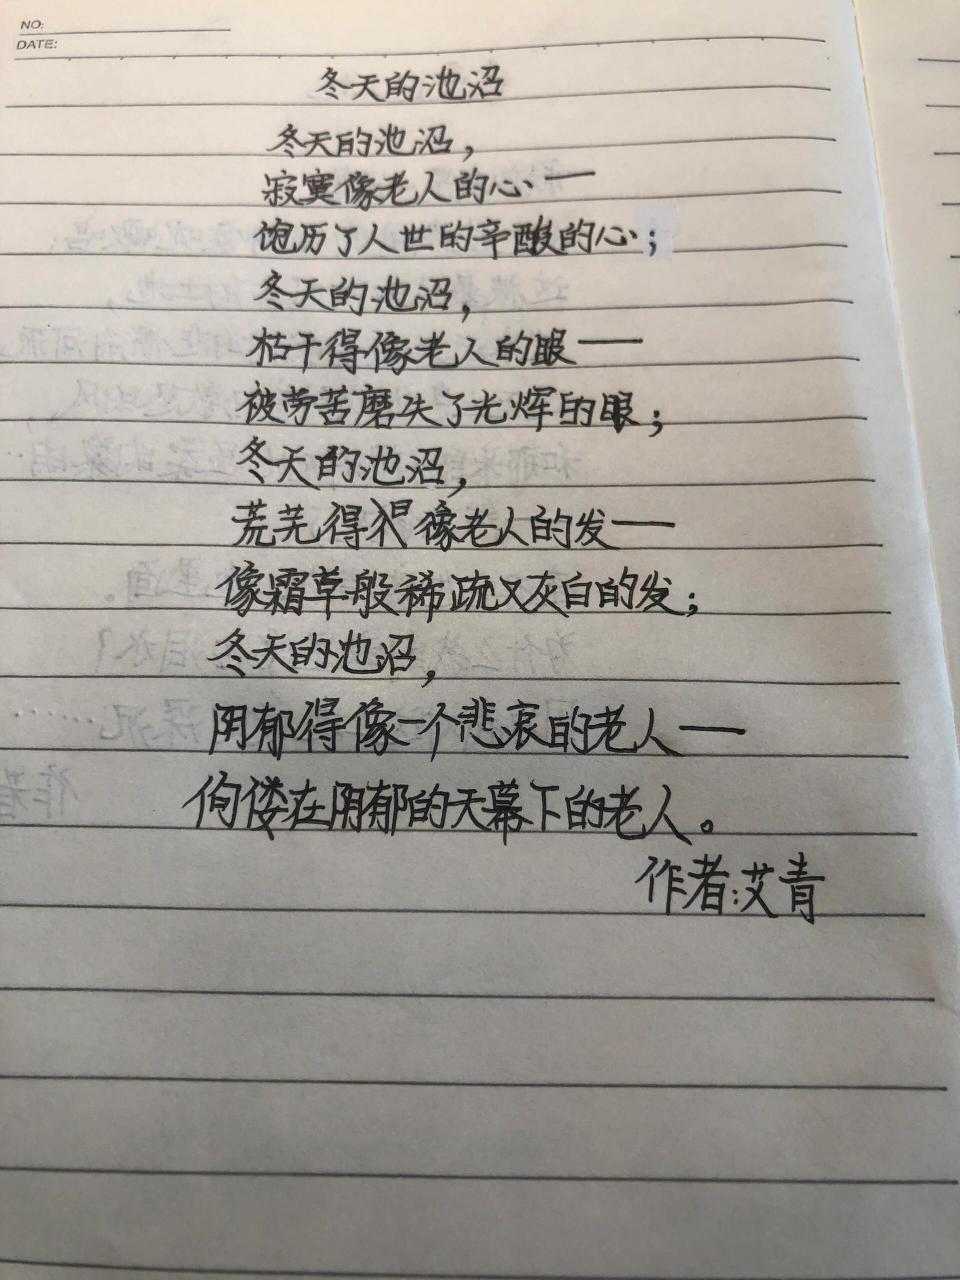 NO:
DATE:
冬天的池沼
冬天的池沼，
寂寞像老人的心——
饱历了人世的辛酸的心；
冬天的池沼，
枯干得像老人的眼——
被劳苦磨失了光辉的眼；
冬天的池沼，
荒芜得像老人的发——
像霜草般稀疏又灰白的发；
冬天的池沼，
阴郁得像一个悲哀的老人——
佝偻在阴郁的天幕下的老人。
作者：艾青